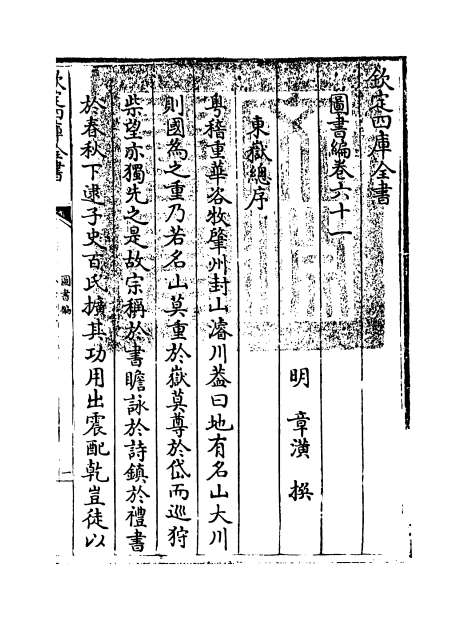 欽定四庫全書
圖書編卷六十一
明 章潢 撰
東嶽總序
粵稽重華咨牧肇州封山濬川葢曰地有名山大川
則國為之重乃若名山莫重於嶽莫尊於岱而巡狩
柴望亦獨先之是故宗稱於書瞻詠於詩鎮於禮書
於春秋下逮子史百氏擴其功用出震配乾豈徒以
欽定四庫全書
圖書編
一